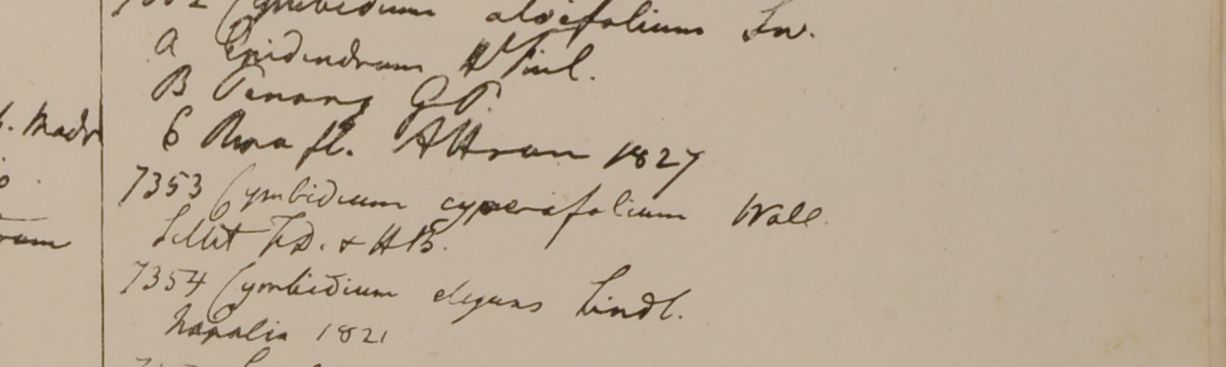 7352 Cymbidium aloifolium Sw.
a Epidendrum H Finl.
B Penang G.P.
6 fl. Attran 1827
7353 Cymbidium cyperifolium Wall.
Sillet F.D. & H.B.
7354 Cymbidium elegans Lindl.
Napalia 1821